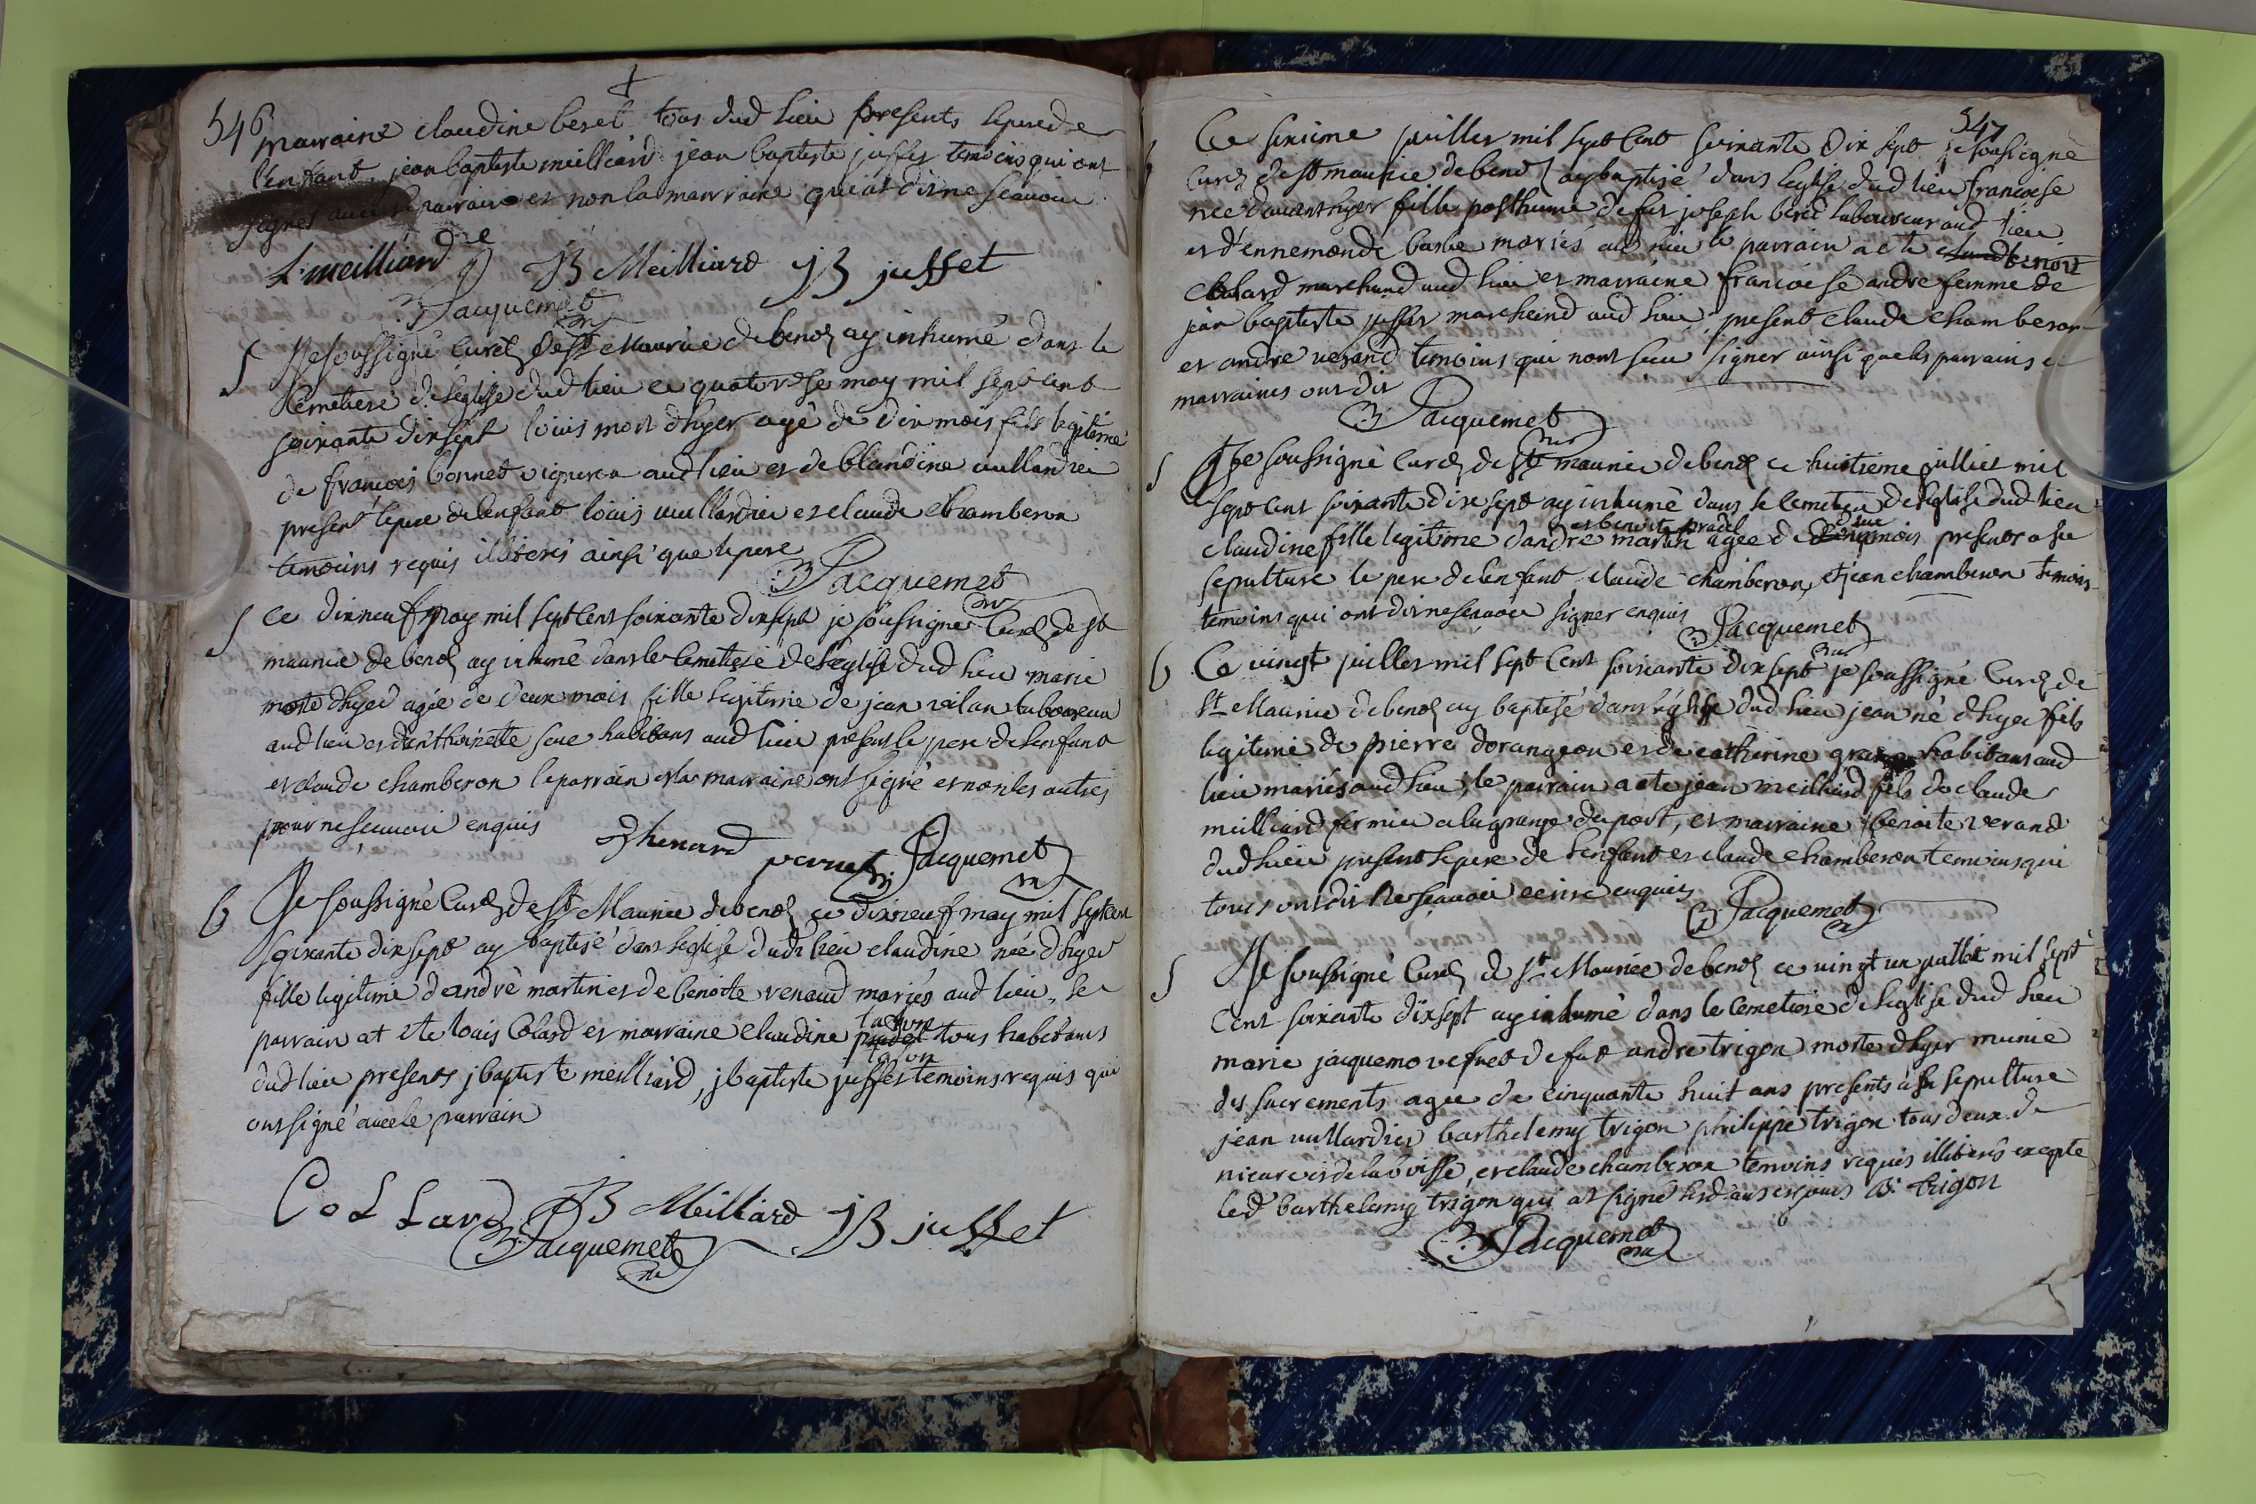 546
marraine claudine beret tous dud lieu presents le pere de
l'enfant jean baptiste meilliard jean baptiste juffet temoins qui ont
signes avec le parrain et non la marraine qui at dit ne scavoir
L. meilliard JB Meilliard JB juffet
Jacquemet
S Je soussigné Curé de St Maurice de benot ay inhumé dans le
Cemetiere de l'eglise dud lieu ce quatorse may mil sept cent
soixante dix sept louis mort d'hyer agé de dix mois fils legitime
de francois bonnet vigneron aud lieu et de blandine vullardier
present le pere de l'enfant louis vullardier et claude chamberon
temoins requis illiterés ainsi que le pere
Jacquemet
S Ce dix neuf may mil sept Cent soixante dix sept je soussigné Curé de st
maurice de benot ay inhumé dans le Cemetiere de l'eglise dud lieu marie
morte d'hyer agée de deux mois fille legitime de jean laboureur
aud lieu et d'anthoinette habitans aud lieu present le pere de l'enfant
et claude chamberon le parrain et la marraine ont signé et non les autres
pour ne sçavoir enquis
Jacquemet
b Je soussigné Curé de St Maurice de benot ce dix neuf may mil sept cent
soixante dix sept ay baptisé dans l'eglise dudt lieu claudine née d'hyer
fille legitime d'andré martin et de benoite renaud mariés aud lieu, le
parrain at eté louis Colard et marraine claudine tous habitans
dud lieu presents j baptiste meilliard, j baptiste juffet temoins requis qui
ont signé avec le parrain
CoLLard JB Meilliard JB juffet
Jacquemet
547
b Ce sixieme juillet mil sept Cent soixante dix sept je soussigné
Curé de st maurice de benot ay baptisé dans l'eglise dud lieu francoise
née d'avant hyer fille posthume de fut joseph beret laboureur aud lieu
et d'ennemonde barbe mariés aud lieu le parrain a eté benoit
marchand aud lieu et marraine francoise andre femme de
jean baptiste juffet marchand aud lieu, present claude chamberon
et andre verand temoins qui n'ont sceu signer ainsi que les parrains et
marraines ont dit
Jacquemet
S Je soussigné Curé de st maurice de benot ce huitieme juillet mil
sept cent soixante dix sept ay inhumé dans le Cemetiere de l'eglise dud lieu
claudine fille legitime d'andre martin et benoite pradel agée de mois presents a sa
sepulture le pere de l'enfant claude chamberon, et jean chamberon temoins
temoins qui ont dit ne scavoir signer enquis
Jacquemet
b Ce vingt juillet mil sept Cent soixante dix sept je soussigné Curé de
St Maurice de benot ay baptisé dans l'eglise dud lieu jean né d'hyer fils
legitime de pierre dorangeon et de catherine habitans aud
lieu mariés aud lieu, le parrain a eté jean meilliard fils de claude
meilliard fermier a la grange du port, et marraine benoite verand
dud lieu present le pere de l'enfant et claude chamberon temoins qui
tous ont dit ne sçavoir ecrire enquis
Jacquemet
S Je soussigné Curé de St Maurice de benot ce vingt un juillet mil sept
Cent soixante dix sept ay inhumé dans le Cemetiere de l'eglise dud lieu
marie jacquemo de fut andre trigon morte d'hyer munie
des sacrements agée de cinquante huit ans presents a sa sepulture
jean vullardier barthelemy trigon philippe trigon tous deux de
et de la boisse, et claude chamberon temoins requis illiterés excepte
led barthelemy trigon qui at signé lesd ans et jours B. trigon
Jacquemet